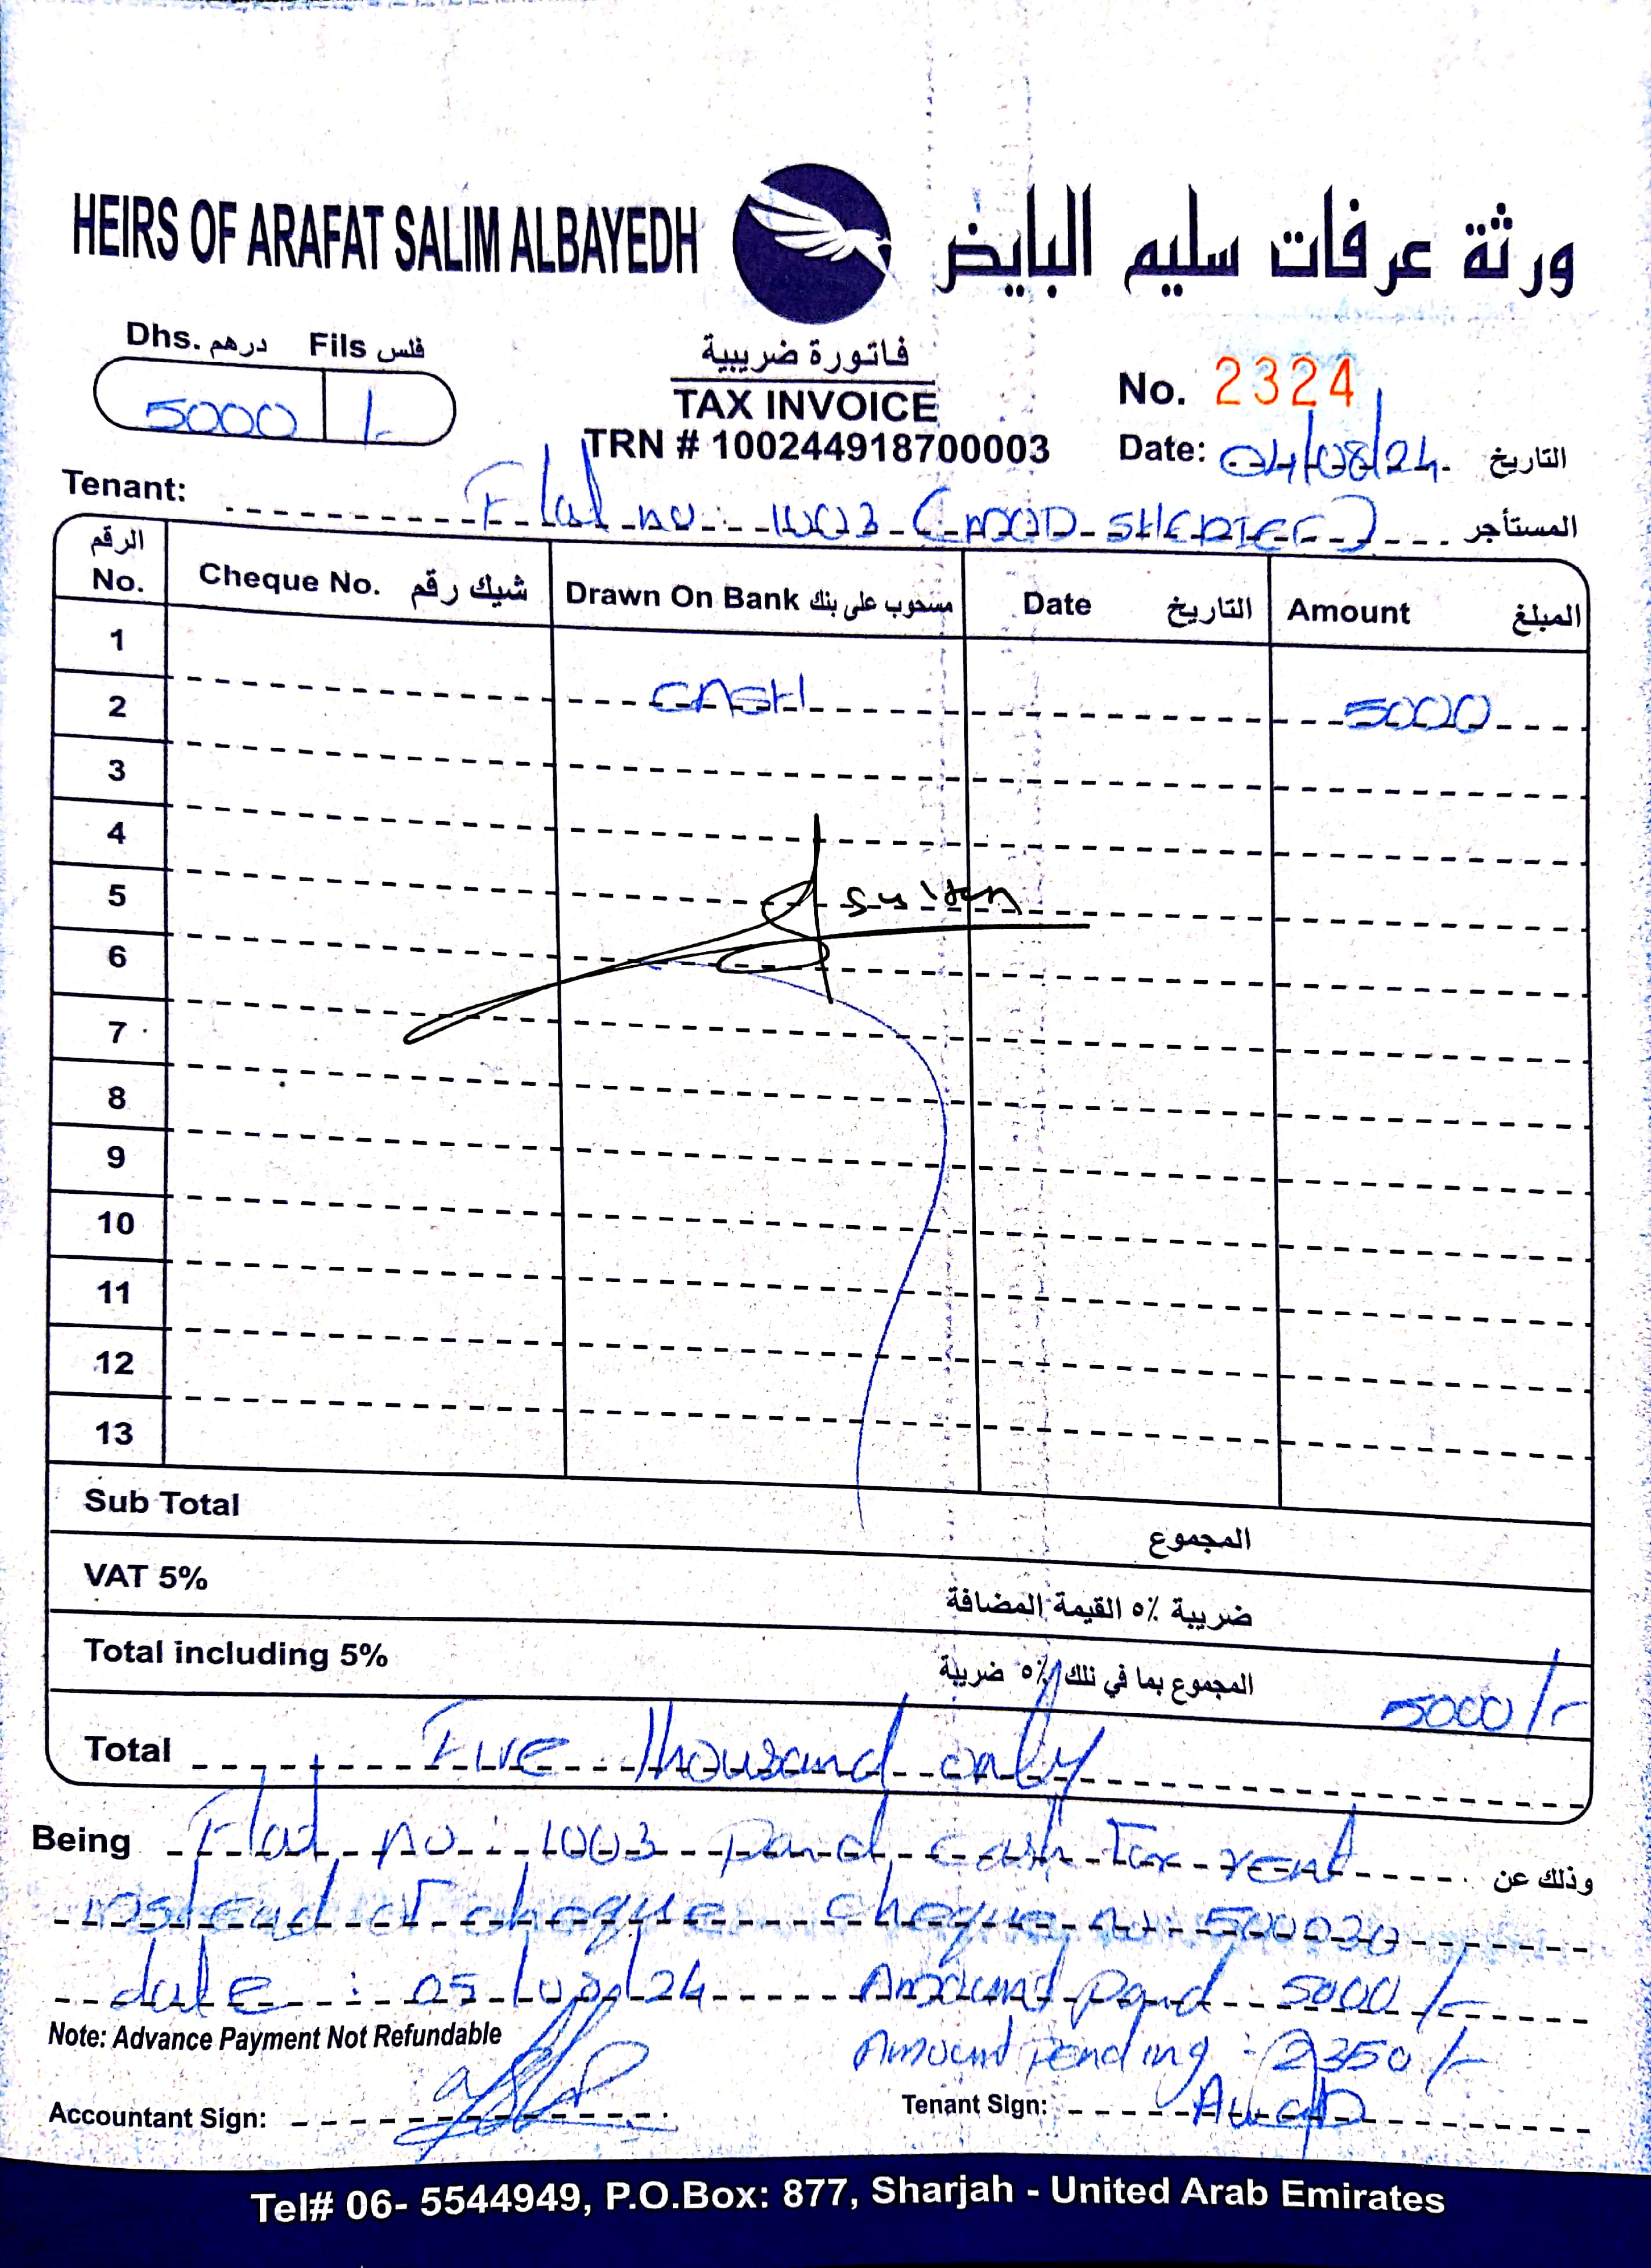 HEIRS OF ARAFAT SALIM ALBAYEDH ورثة عرفات سليم البايض
Dhs. درهم Fils فلس
5000 /-
فاتورة ضريبية
TAX INVOICE
TRN # 100244918700003
No. 2324
Date: 04/08/24 التاريخ
Tenant: Flat no: 1003 المستأجر
الرقم No. Cheque No. شيك رقم Drawn On Bank مسحوب على بنك Date التاريخ Amount المبلغ
1
2 CASH 5000
3
4
5 Sultan
6
7
8
9
10
11
12
13
Sub Total المجموع
VAT 5% ضريبة ٥٪ القيمة المضافة
Total including 5% المجموع بما في ذلك ٥٪ ضريبة 5000/-
Total Five thousand only
Being Flat no: 1003 paid cash for rent وذلك عن
instead of cheque cheque no: 500030
date : 05 24 Amount paid 5000/-
Note: Advance Payment Not Refundable
Amount pending : 2350/-
Accountant Sign:
Tenant Sign:
Tel# 06- 5544949, P.O.Box: 877, Sharjah - United Arab Emirates